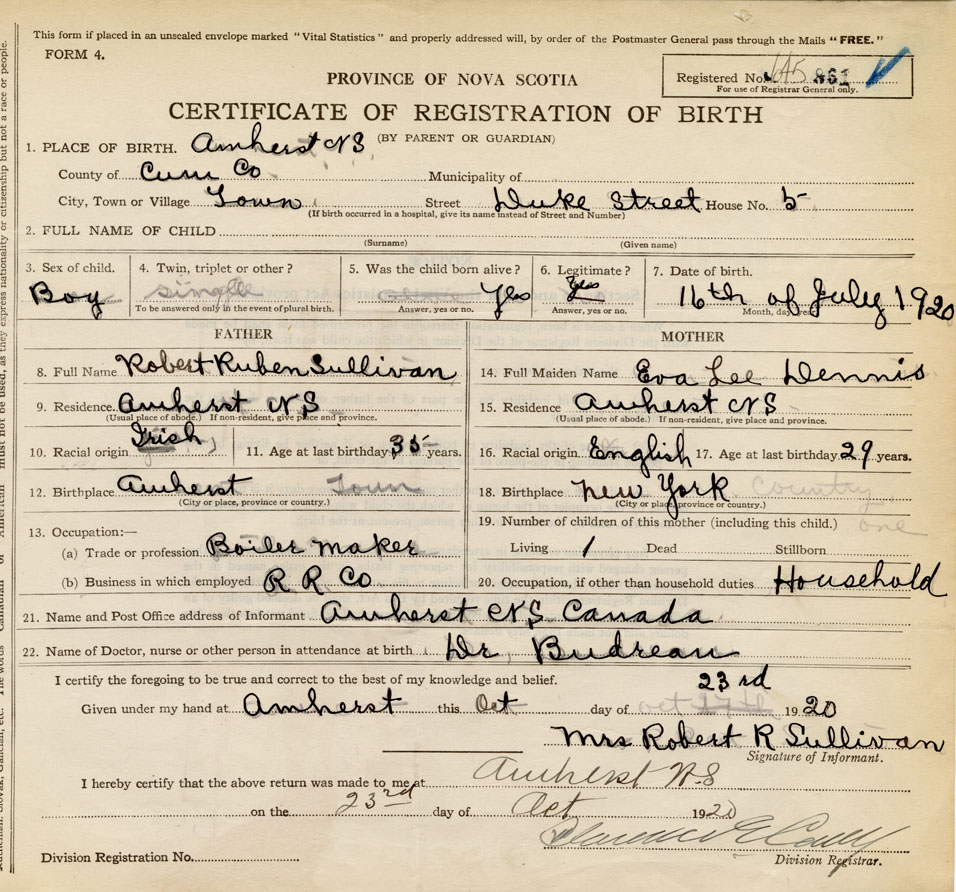 This form if placed in an unsealed envelope marked "Vital Statistics" and properly addressed will, by order of the Postmaster General pass through the Mails "FREE."
FORM 4.
PROVINCE OF NOVA SCOTIA
Registered No. 861
For use of Registrar General only.
CERTIFICATE OF REGISTRATION OF BIRTH
(BY PARENT OR GUARDIAN)
1. PLACE OF BIRTH. Amherst NS
County of Cum Co Municipality of
City, Town or Village Town Street Duke Street House No. 5
(If birth occurred in a hospital, give its name instead of Street and Number)
2. FULL NAME OF CHILD
(Surname) (Given name)
3. Sex of child. 4. Twin, triplet or other? 5. Was the child born alive? 6. Legitimate? 7. Date of birth.
Boy single Yes Yes 16th of July 1920
To be answered only in the event of plural birth. Answer, yes or no. Answer, yes or no. Month, day, year.
FATHER MOTHER
8. Full Name Robert Ruben Sullivan 14. Full Maiden Name Eva Lee Dennis
9. Residence. Amherst NS 15. Residence Amherst NS
(Usual place of abode.) If non-resident, give place and province. (Usual place of abode.) If non-resident, give place and province.
10. Racial origin Irish 11. Age at last birthday 35 years. 16. Racial origin English 17. Age at last birthday 29 years.
12. Birthplace Amherst Town 18. Birthplace New York Country
(City or place, province or country.) (City or place, province or country.)
13. Occupation:— 19. Number of children of this mother (including this child.) one
(a) Trade or profession Boiler maker Living 1 Dead Stillborn
(b) Business in which employed R R Co 20. Occupation, if other than household duties Household
21. Name and Post Office address of Informant Amherst NS Canada
22. Name of Doctor, nurse or other person in attendance at birth Dr Budreau
I certify the foregoing to be true and correct to the best of my knowledge and belief. 23rd
Given under my hand at Amherst this Oct day of oct 17th 1920
Mrs Robert R Sullivan
Signature of Informant.
I hereby certify that the above return was made to me at Amherst N-S
on the 23rd day of Oct 1920
Division Registration No. Division Registrar.